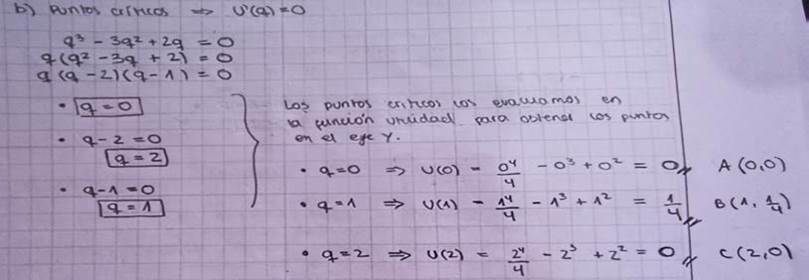 b) Puntos críticos ⇒ U'(q)=0
q³ - 3q² + 2q = 0
q(q² - 3q + 2) = 0
q(q-2)(q-1) = 0
• q=0
• q-2=0
q=2
• q-1=0
q=1
Los puntos críticos los evaluamos en
la función utilidad para obtener los puntos
en el eje Y.
• q=0 ⇒ U(0) = 0⁴/4 - 0³ + 0² = 0 A(0,0)
• q=1 ⇒ U(1) = 1⁴/4 - 1³ + 1² = 1/4 B(1, 1/4)
• q=2 ⇒ U(2) = 2⁴/4 - 2³ + 2² = 0 C(2,0)